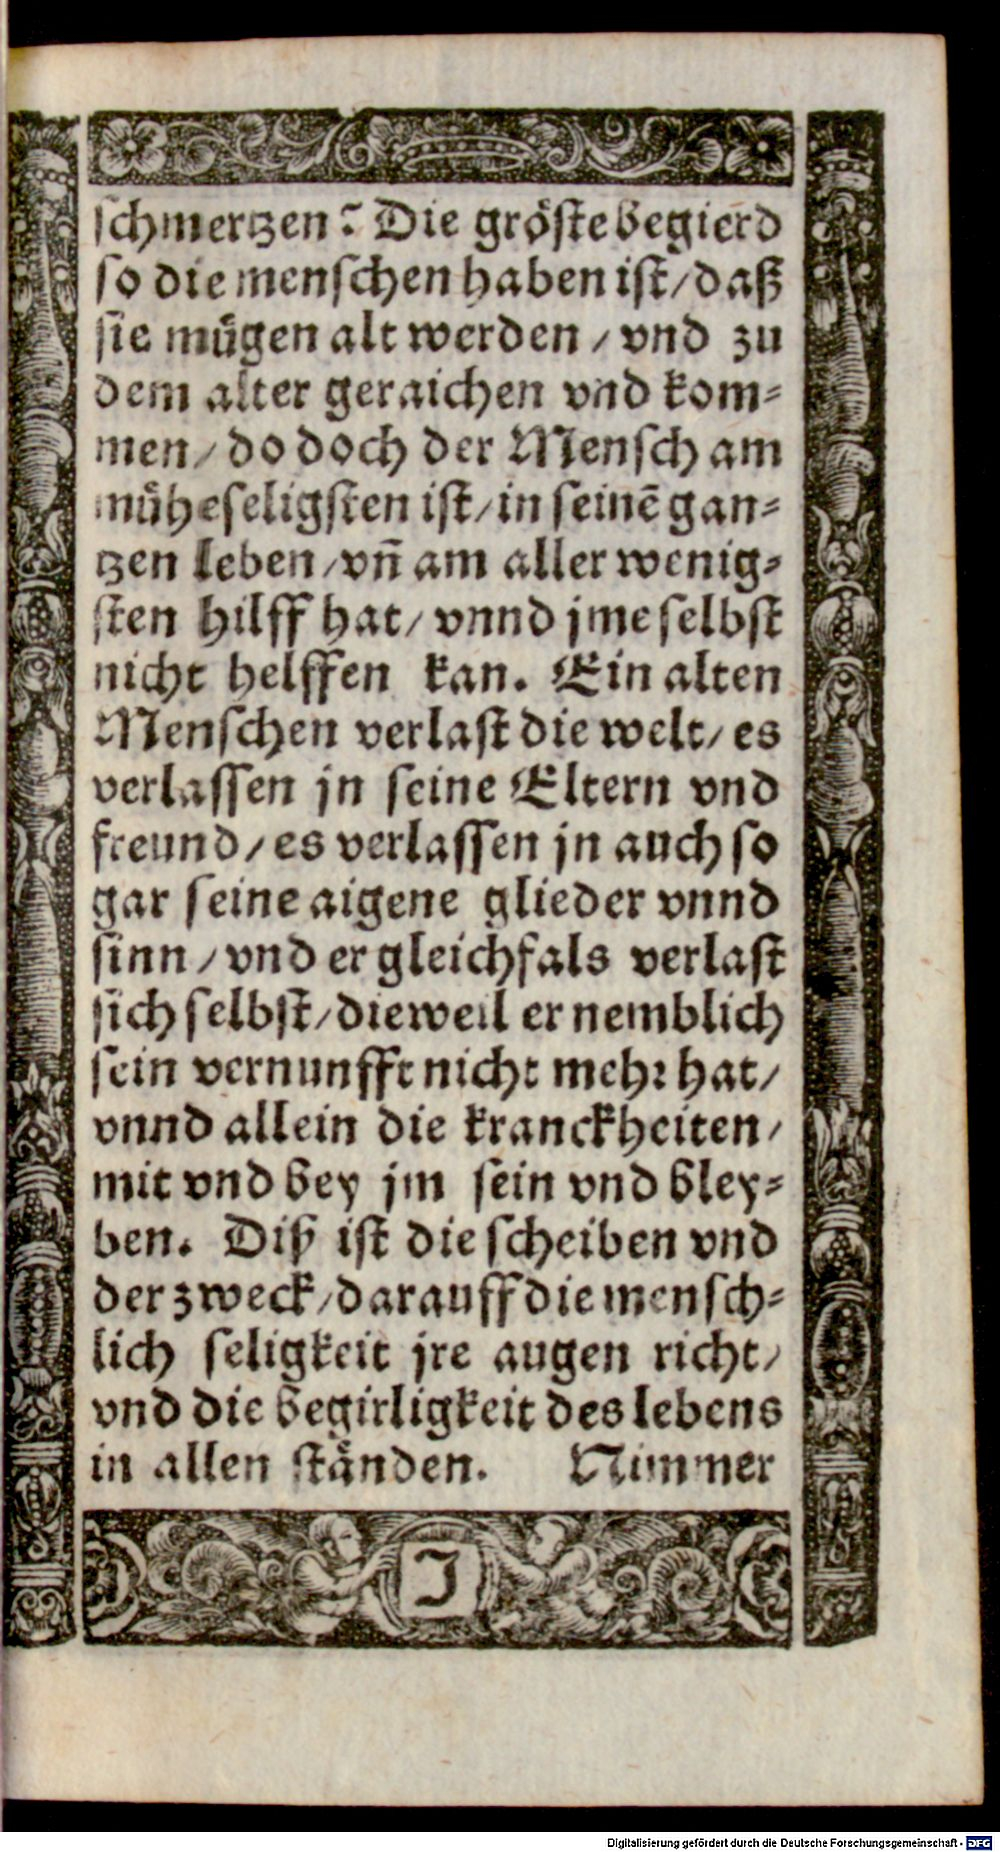 schmertzen? Die gröste begierd
so die menschen haben ist/ daß
sie mügen alt werden / vnd zu
dem alter geraichen vnd kom⸗
men/ do doch der Mensch am
müheseligsten ist/ in seinẽ gan⸗
tzen leben/ vñ am aller wenig⸗
sten hilff hat/ vnnd jme selbst
nicht helffen kan. Ein alten
Menschen verlast die welt/ es
verlassen jn seine Eltern vnd
freund/ es verlassen jn auch so
gar seine aigene glieder vnnd
sinn/ vnd er gleichfals verlast
sich selbst/ dieweil er nemblich
sein vernunfft nicht mehr hat/
vnnd allein die kranckheiten/
mit vnd bey jm sein vnd bley⸗
ben. Diß ist die scheiben vnd
der zweck/ darauff die mensch⸗
lich seligkeit jre augen richt/
vnd die begirligkeit des lebens
in allen ständen. Nimmer
J
Digitalisierung gefördert durch die Deutsche Forschungsgemeinschaft - DFG